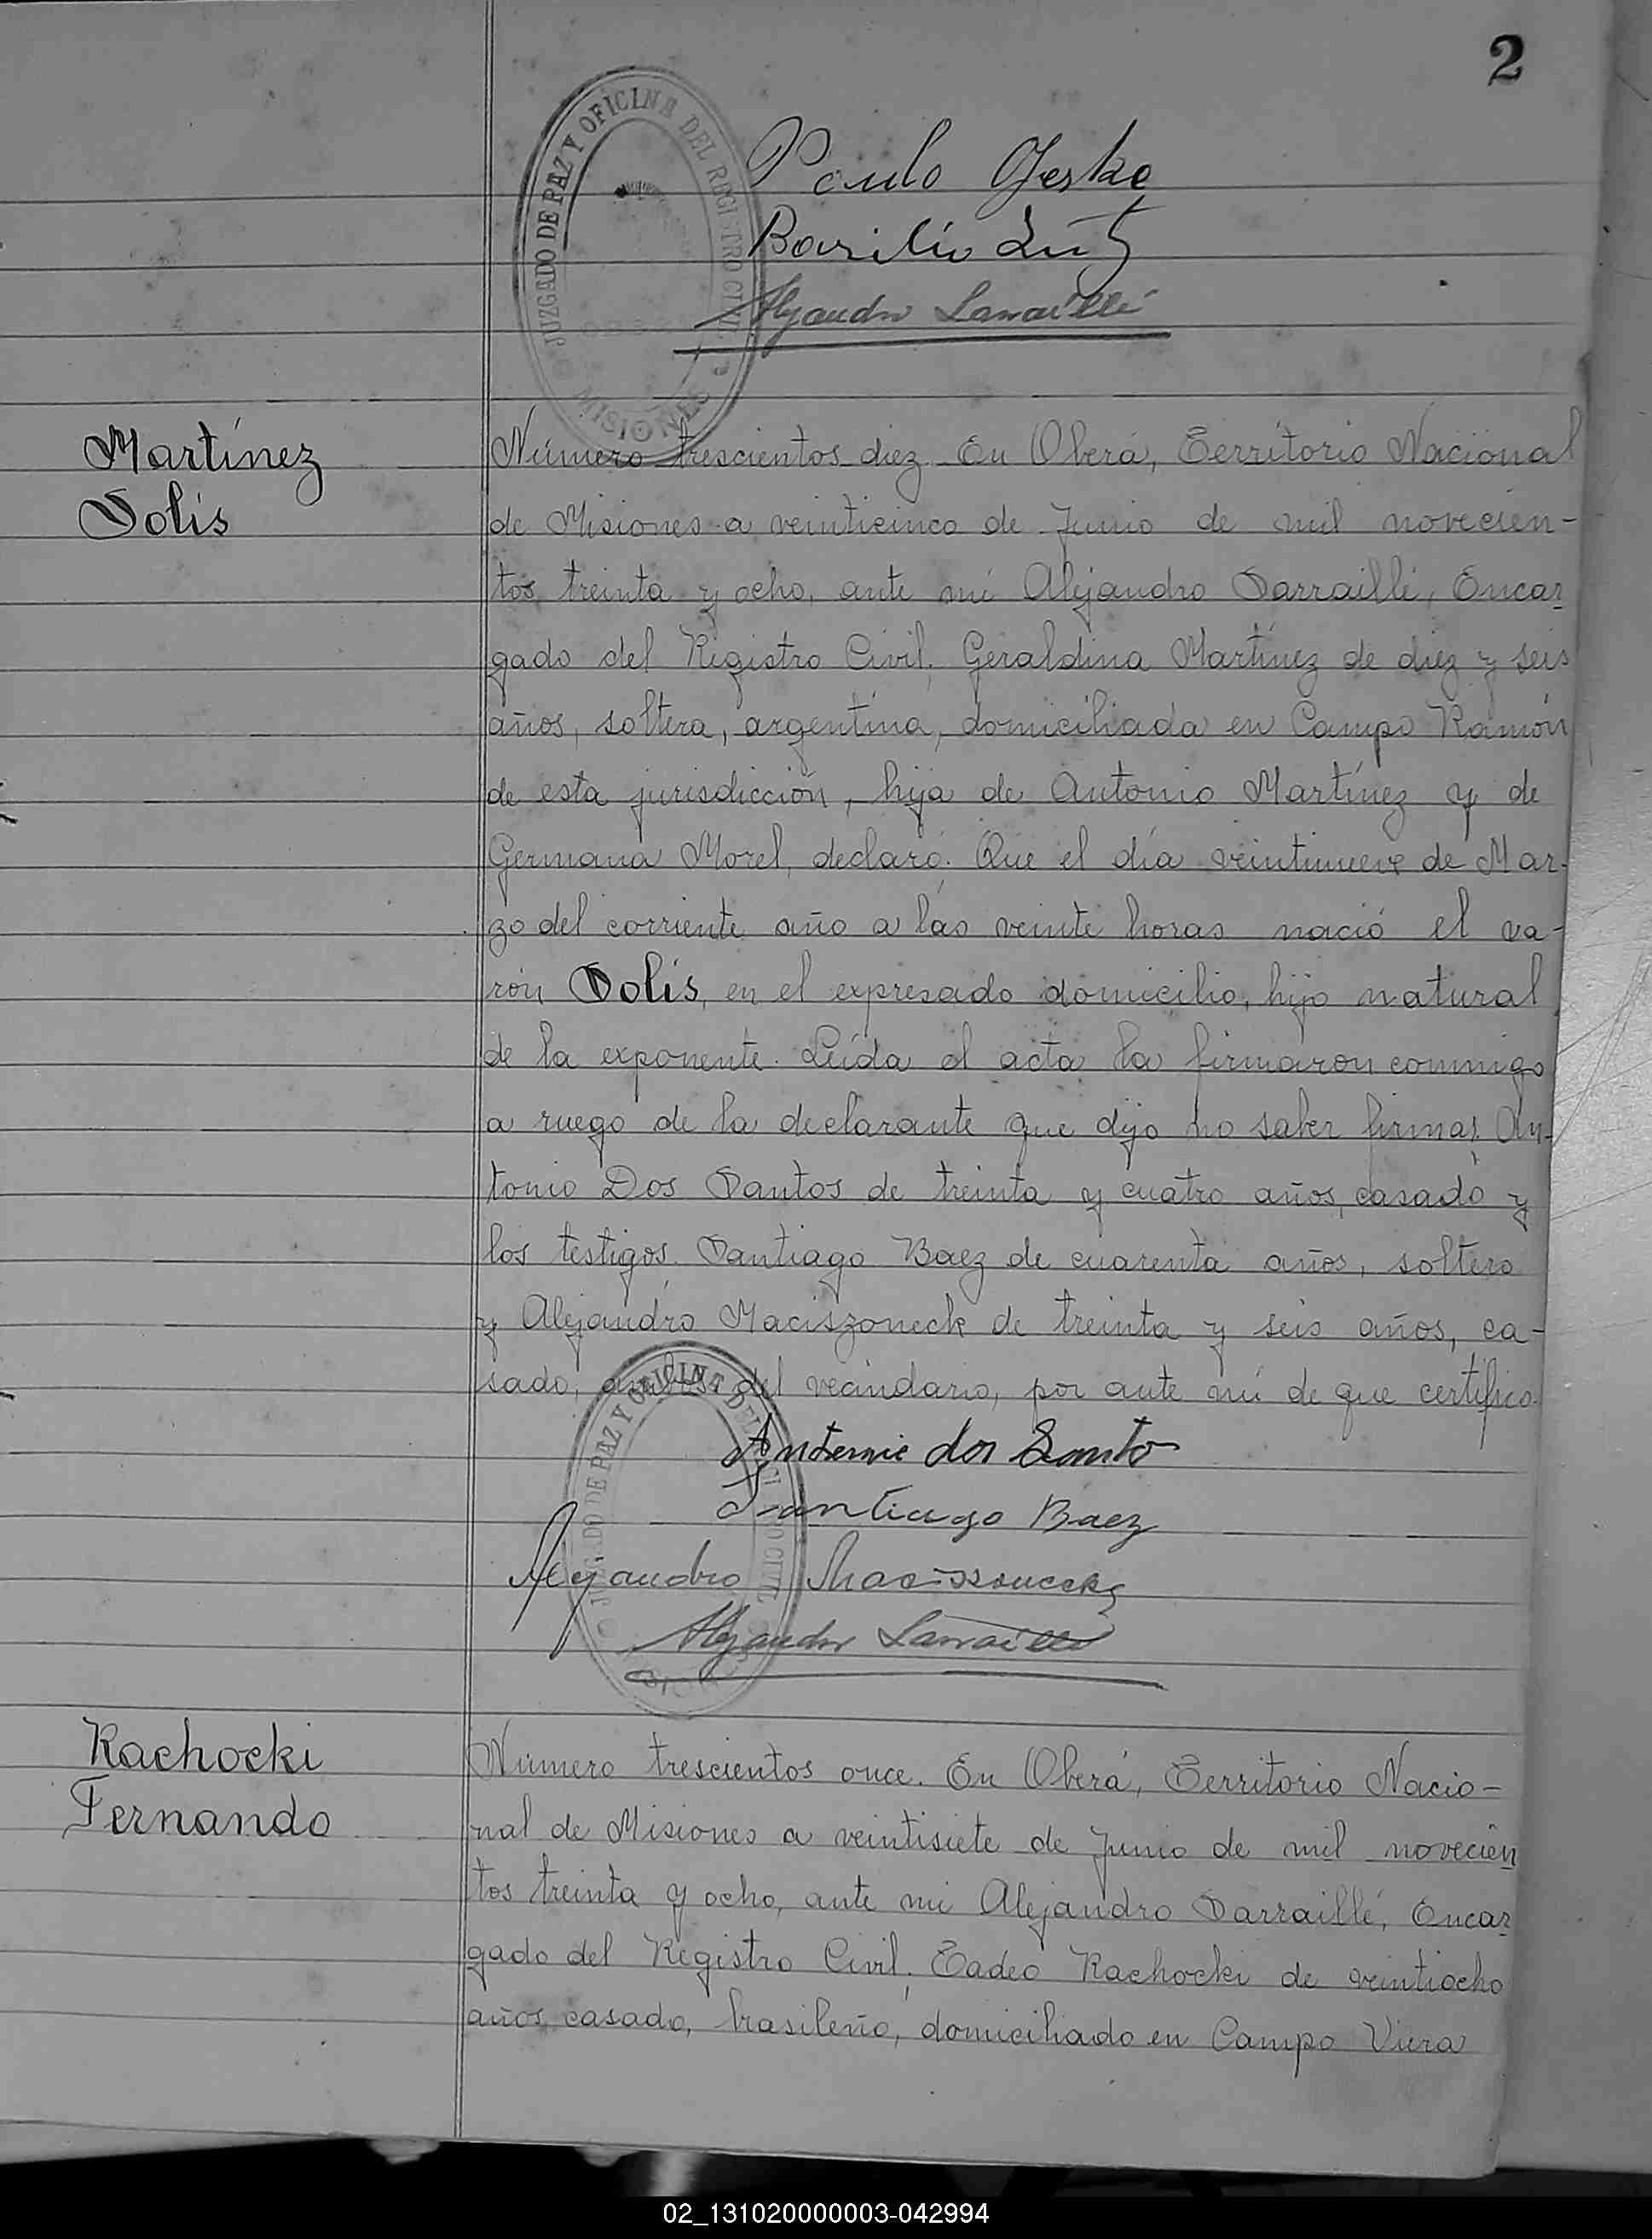 2
JUZGADO DE PAZ Y OFICINA DEL REGISTRO CIVIL
MISIONES
Paulo Jeske
Basilio
Alejandro Sarraillé
Martínez
Solís
Número trescientos diez. En Oberá, Territorio Nacional
de Misiones a veinticinco de Junio de mil novecien-
tos treinta y ocho, ante mí Alejandro Sarraillé, Encar-
gado del Registro Civil, Geraldina Martínez de diez y seis
años, soltera, argentina, domiciliada en Campo Ramón
de esta jurisdicción, hija de Antonio Martínez y de
Germana Morel, declaró: Que el día veintinueve de Mar-
zo del corriente año a las veinte horas nació el va-
rón Solís, en el expresado domicilio, hijo natural
de la exponente. Leída el acta la firmaron conmigo
a ruego de la declarante que dijo no saber firmar An-
tonio Dos Santos de treinta y cuatro años, casado y
los testigos Santiago Baez de cuarenta años, soltero
y Alejandro Maciszoneck de treinta y seis años, ca-
sado, ambos del vecindario, por ante mí de que certifico.
JUZGADO DE PAZ Y OFICINA DEL
Antonio dos Santo
Santiago Baez
Alejandro
Alejandro Sarraillé
Rachocki
Fernando
Número trescientos once. En Oberá, Territorio Nacio-
nal de Misiones a veintisiete de Junio de mil novecien
tos treinta y ocho, ante mí Alejandro Sarraillé, Encar-
gado del Registro Civil, Tadeo Rachocki de veintiocho
años, casado, brasileño, domiciliado en Campo Viera
02_131020000003-042994